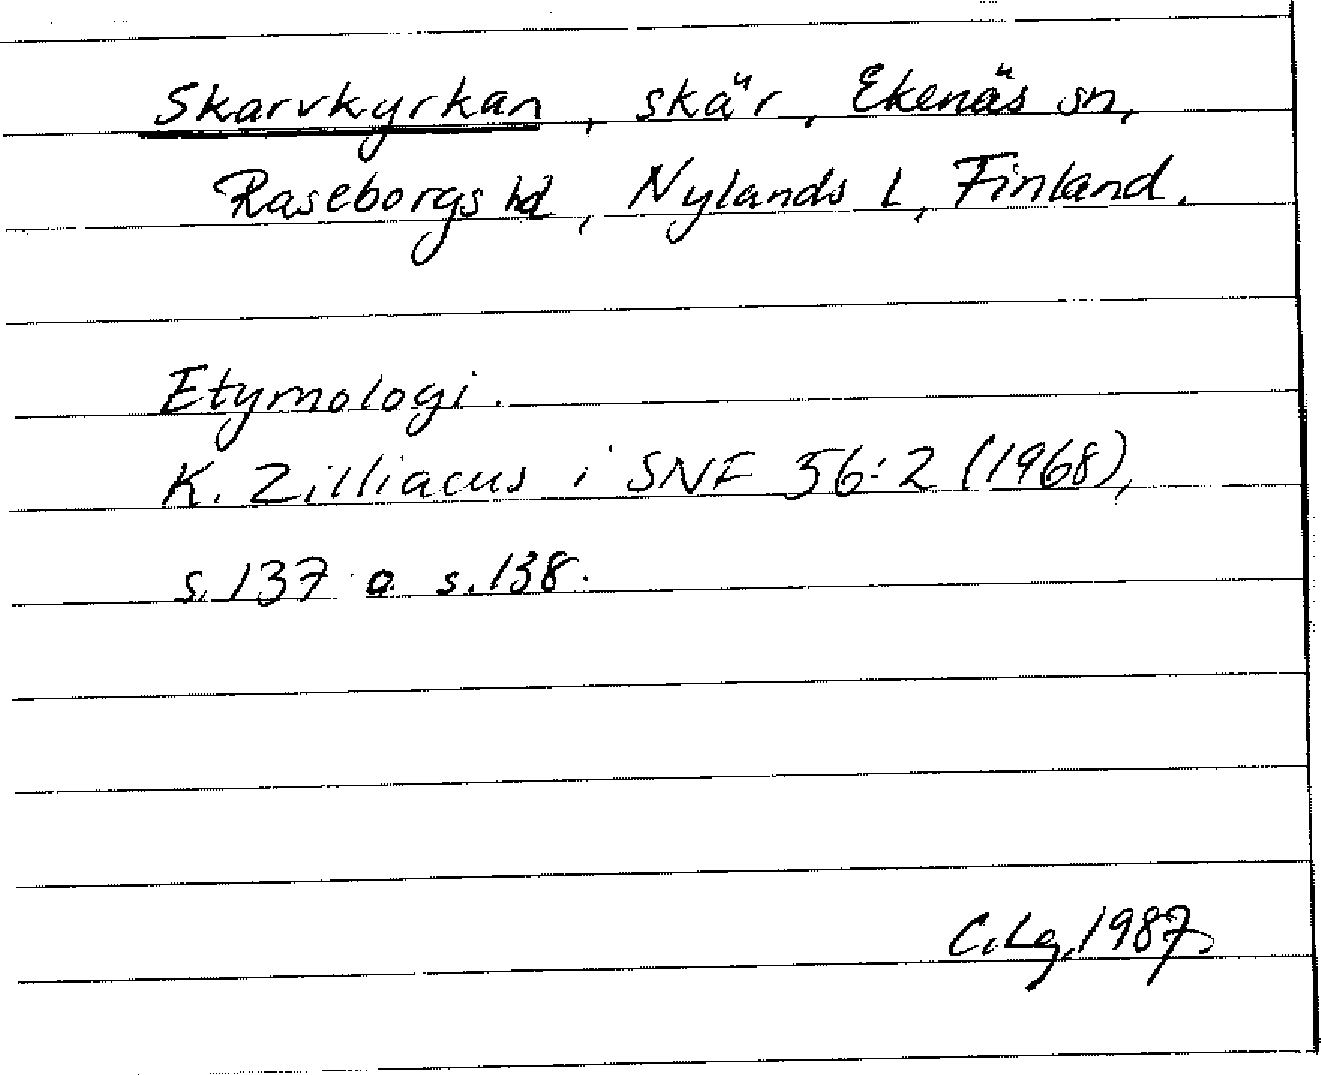 Skarvkyrkan, skär, Ekenäs sn,
Raseborgs hd, Nylands l, Finland.
Etymologi.
K. Zilliacus i SNF 56:2 (1968),
s. 137 o. s. 138.
C. Lg, 1987.